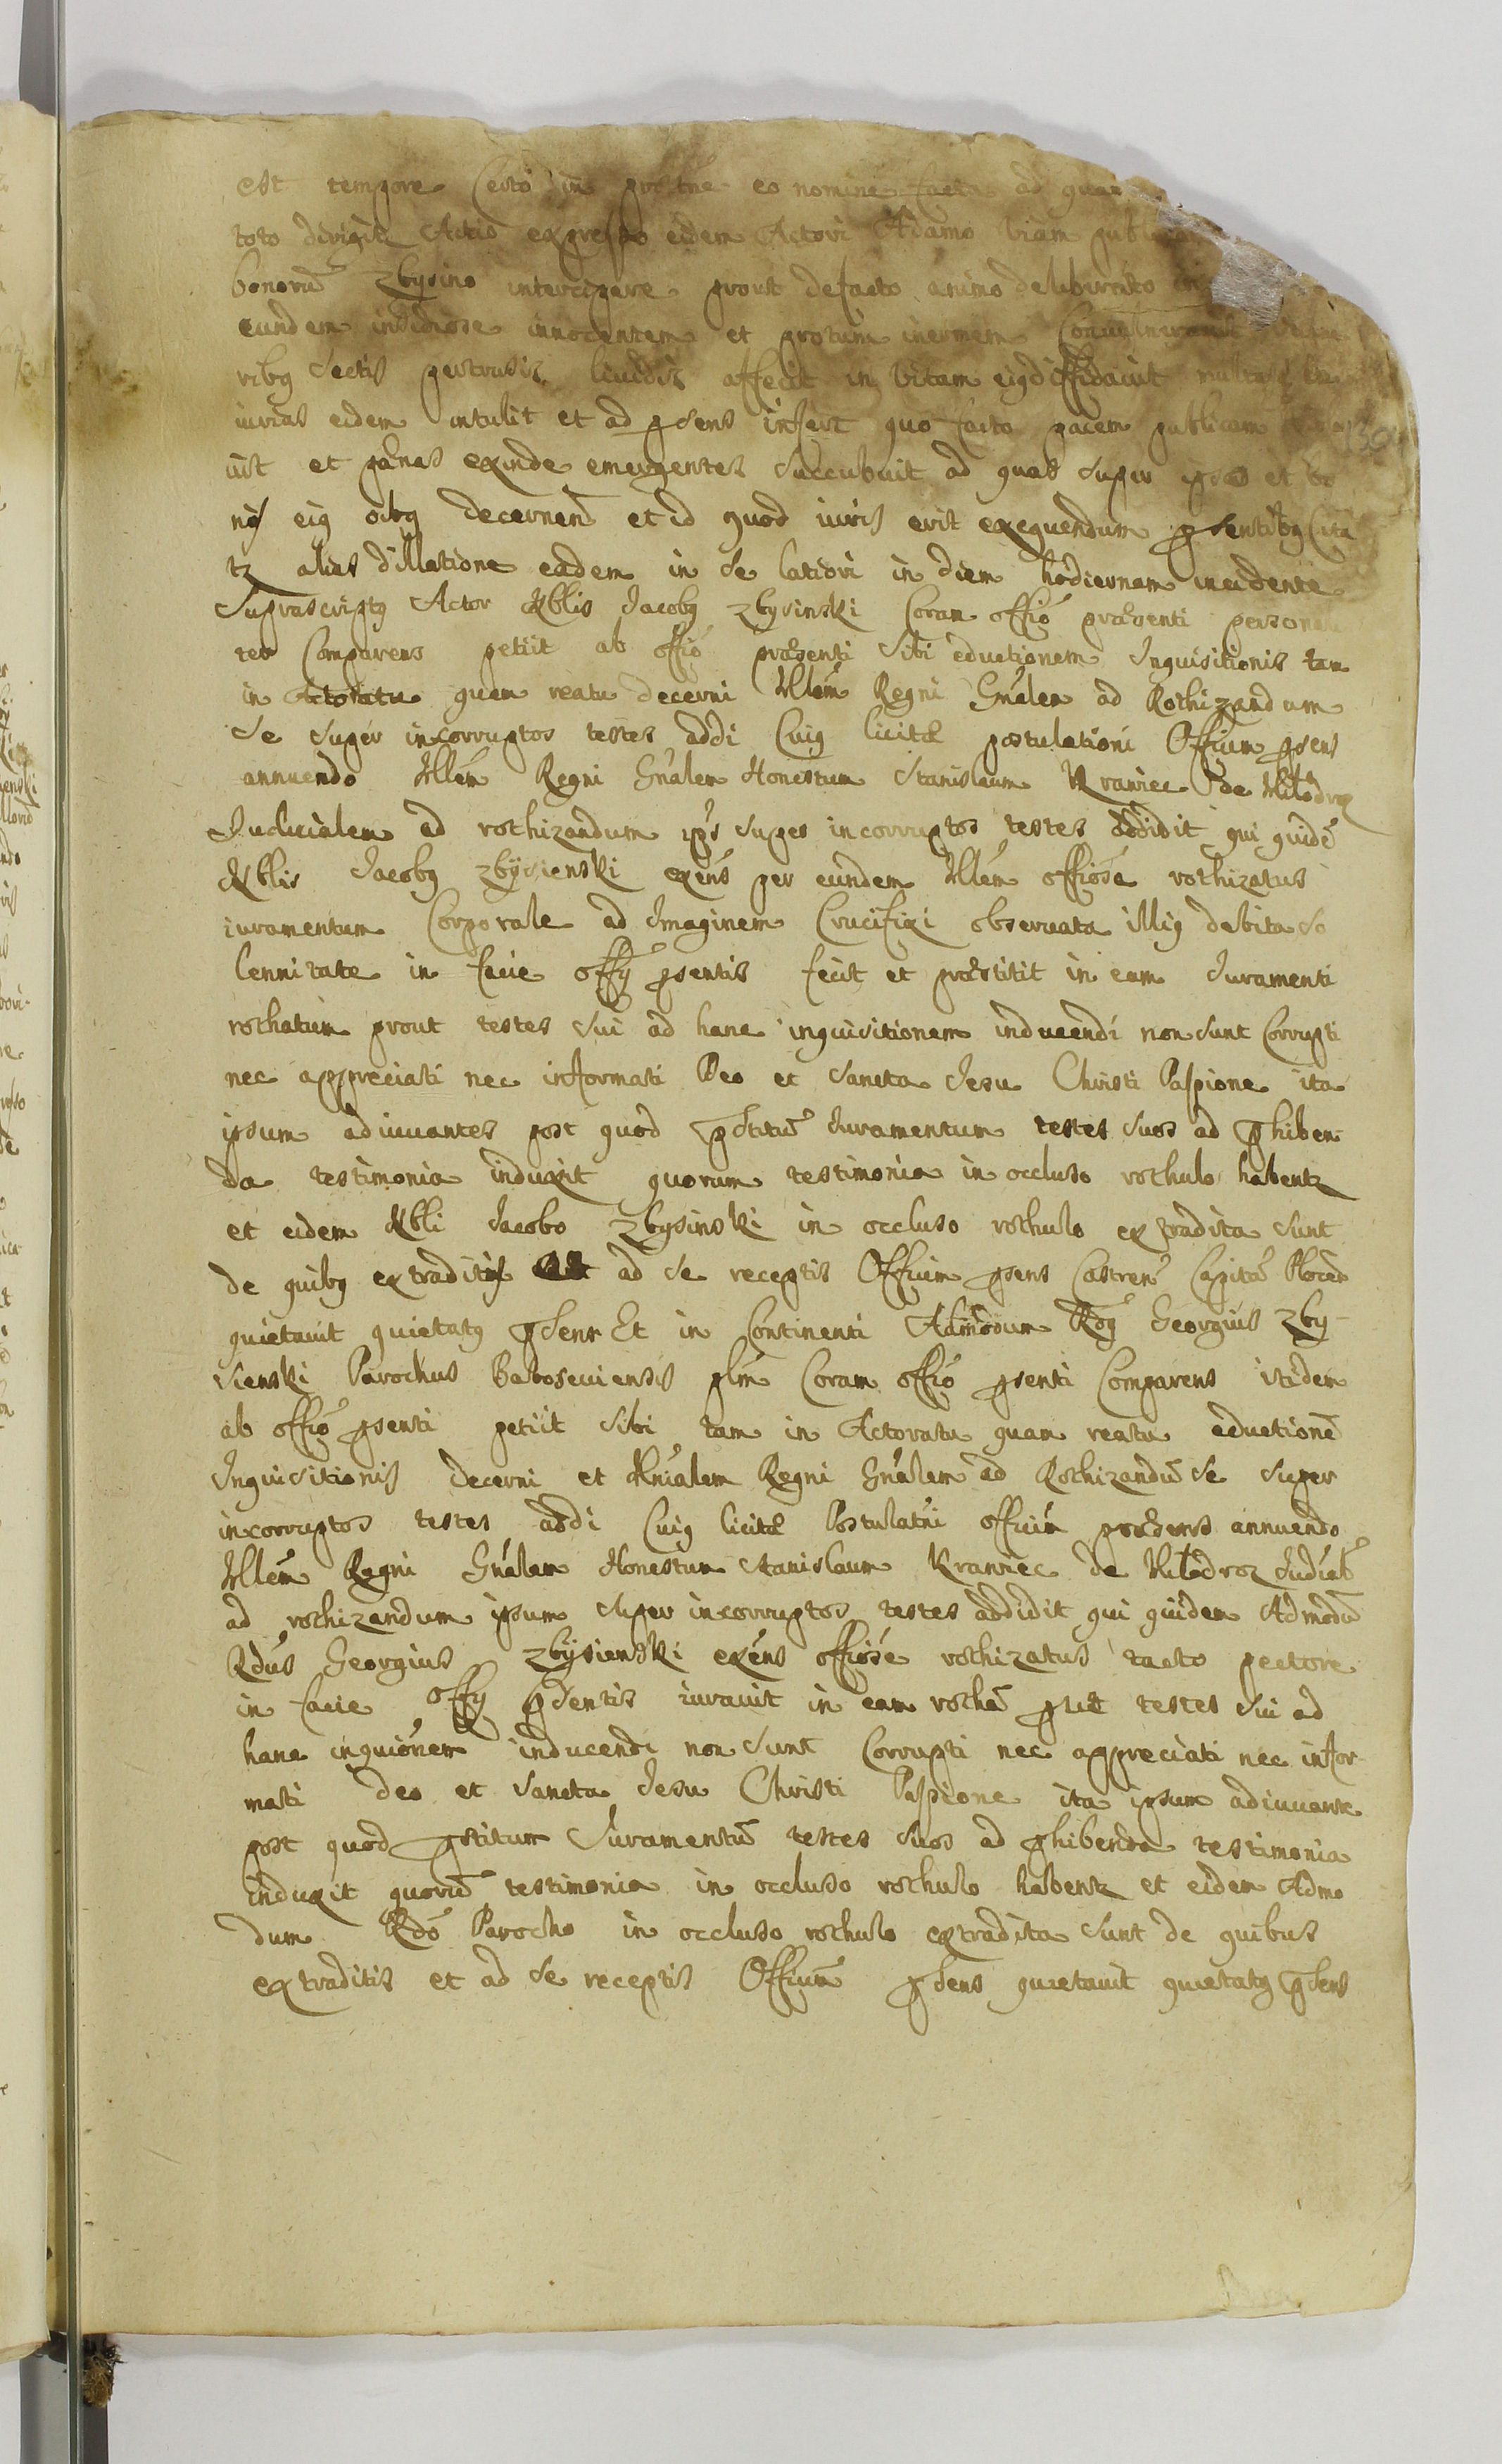 est tempore certo in eo nomine facta ad quae
toto dirigit Actio expresso eidem Actori Adamo viam publicam
bonorũ Zbysino intercipere prout defacto animo deliberato
eundem insidiose innocentem et protunc inermem Convulneravit
ribq sectis pertrusis lividis affecit in vitam eiq diffidavit multas
iurias eidem intulit et ad psens infert quo facto pacem publicam
uit et pænas exinde emergentes succubuit ad quas super ipso et bo
nis eiq oibq decernen et id quod iuris erit exequendum psentibq Cita
tz alias dillatione eadem in se latiori in diem hodiernam incidente
Suprascriptq Actor Nblis Jacobq Zbysinski Coram offio præsenti personali
ter Comparens petiit ab offio præsenti sibi eductionem Inquisitionis tam
in Actoratu quam reatu decerni Mlem Regni Gnalem ad Rothizandum
se super incorruptos testes addi Cuiq licitæ postulationi Offium psens
annuendo Mlem Regni Gnalem Honestum Stanislaum Krawiec de Milodroz
Judicialem ad rothizandum ips super incorruptos testes addidit qui quidẽ
Nblis Jacobq Zbysienski exens per eundem Mlem offiose rothizatus
iuramentum Corporale ad Imaginem Crucifixi observata illiq debita so
lennitate in facie offy psentis fecit et præstitit in eam Juramenti
rotham prout testes sui ad hanc inquisitionem inducendi non sunt Corrupti
nec appreciati nec informati Deo et Sancta Jesu Christi Passione ita
ipsum adiuvantes post quod pstitũ Juramentum testes suos ad phiben
da testimonia induxit quorum testimonia in occluso rothulo habentz
et eidem Nbli Jacobo Zbysinski in occluso rothulo extradita sunt
de quibq extraditis ad se receptis Offium psens Castren Capita Plocen
quietavit quietatq psens Et in Continenti Admodum Rdq Georgius Zby-
sienski Parochus Baboseviensis plr Coram offio psenti Comparens itidem
ab offio psenti petiit sibi tam in Actoratu quam reatu eductionẽ
Inquisitionis decerni et Mnialem Regni Gnalem ad Rothizandũ se super
incorruptos testes addi Cuiq licitæ Postulatni officiũ præsens annuendo
Mlem Regni Gnalem Honestum Stanislaum Krawiec de Milodroz Judialẽ
ad rothizandum ipsum super incorruptos testes addidit qui quidem Admodũ
Rdus Georgius Zbysienski exens offiose rothizatus tacto pectore
in facie offy psentis iuravit in eam rothã put testes sui ad
hanc inquionem inducendi non sunt Corrupti nec appreciati nec infor-
mati Deo et Sancta Jesu Christi Passione ita ipsum adiuvante
post quod pstitum Juramentũ testes suos ad phibenda testimonia
induxit quorũ testimonia in occluso rothulo habentz et eidem Admo
dum Rdo Parocho in occluso rothulo extradita sunt de quibus
extraditis et ad se receptis Offium psens quietavit quietatq psens